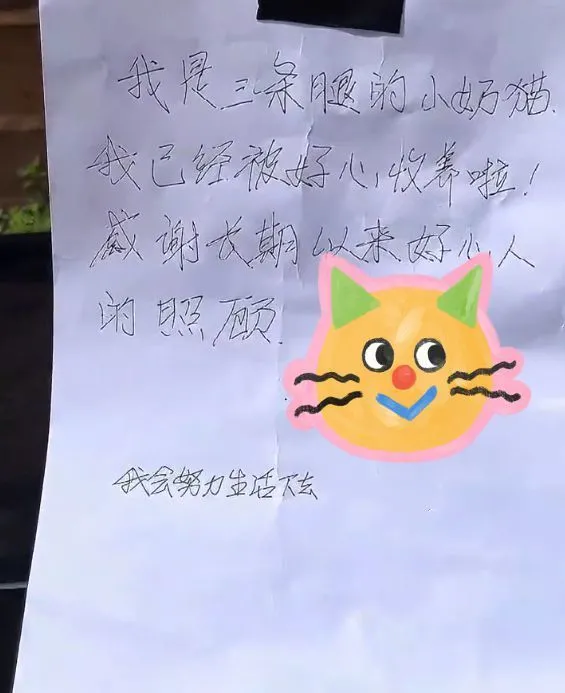 我是三条腿的小奶猫.
我已经被好心收养啦!
感谢长期以来好心人
的照顾.
我会努力生活下去